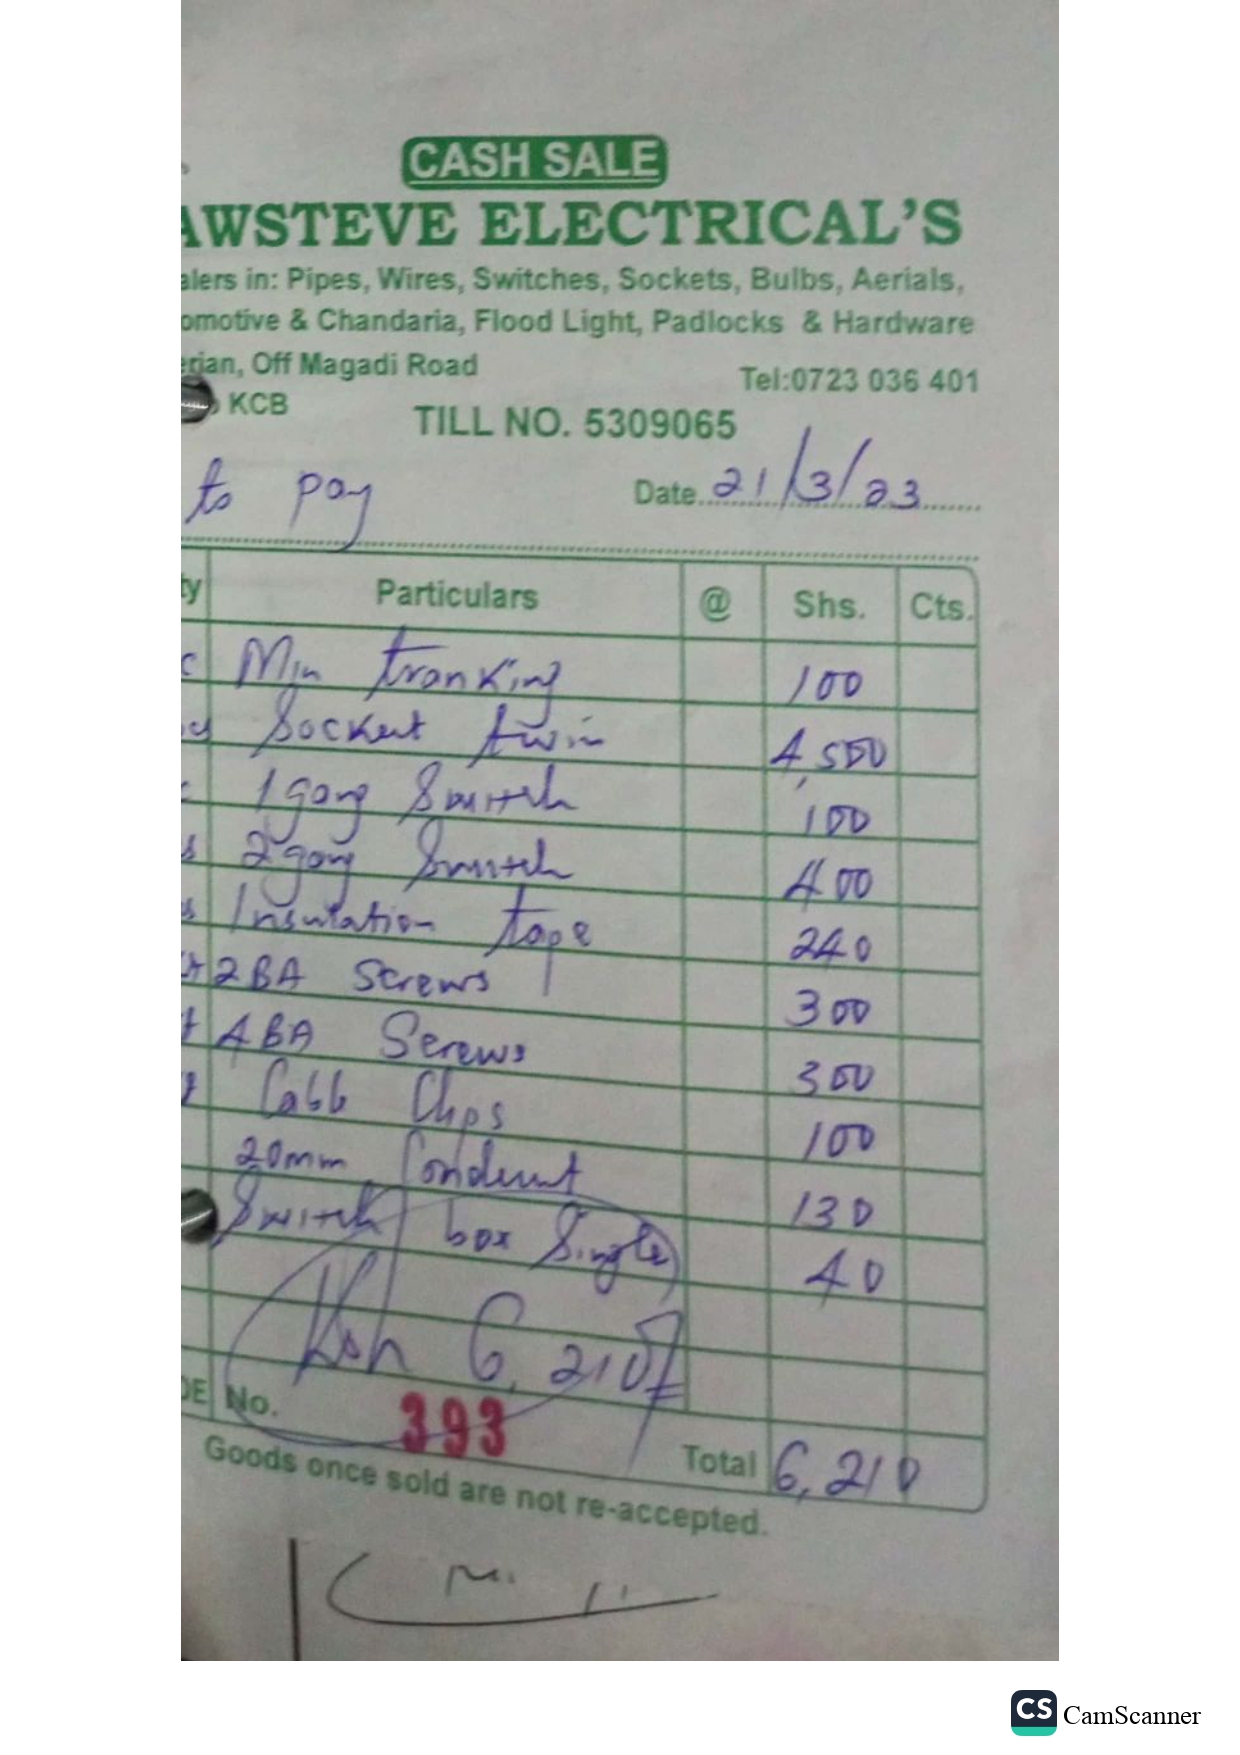 CASH SALE
AWSTEVE ELECTRICAL'S
alers in: Pipes, Wires, Switches, Sockets, Bulbs, Aerials,
omotive & Chandaria, Flood Light, Padlocks & Hardware
erian, Off Magadi Road Tel:0723 036 401
KCB TILL NO. 5309065
to pay Date 21/3/23
ty Particulars @ Shs. Cts.
c Min tranking 100
Socket twin 4,500
1 gang Switch 100
s 2 gang Switch 400
s Insulation tape 240
2BA Screws 300
t 4BA Screws 300
Cable Clips 100
20mm Conduut 130
Switch box Single 40
Ksh 6,210/=
DE No. 393
Total 6,210
Goods once sold are not re-accepted.
CS CamScanner